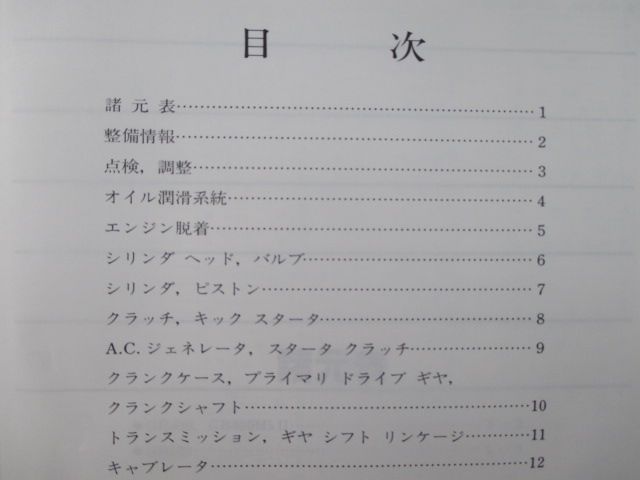 目 次
諸 元 表……………………………………………1
整備情報……………………………………………2
点検，調整…………………………………………3
オイル潤滑系統……………………………………4
エンジン脱着………………………………………5
シリンダ ヘッド，バルブ…………………………6
シリンダ，ピストン………………………………7
クラッチ，キック スタータ………………………8
A.C. ジェネレータ，スタータ クラッチ…………9
クランクケース，プライマリ ドライブ ギヤ，
クランクシャフト…………………………………10
トランスミッション，ギヤ シフト リンケージ……11
キャブレータ………………………………………12